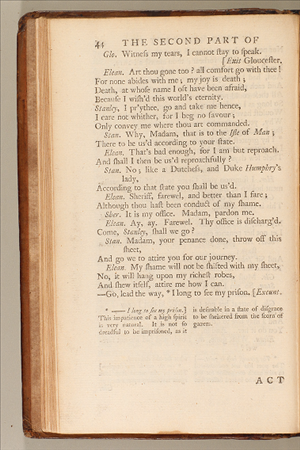 44 THE SECOND PART OF
Glo. Witness my tears, I cannot stay to speak.
[Exit Gloucester.
Elean. Art thou gone too? all comfort go with thee!
For none abides with me; my joy is death;
Death, at whose name I oft have been afraid,
Because I wish'd this world's eternity.
Stanley, I pr'ythee, go and take me hence,
I care not whither, for I beg no favour;
Only convey me where thou art commanded.
Stan. Why, Madam, that is to the Isle of Man;
There to be us'd according to your state.
Elean. That's bad enough, for I am but reproach.
And shall I then be us'd reproachfully?
Stan. No; like a Dutchess, and Duke Humphry's
lady,
According to that state you shall be us'd.
Elean. Sheriff, farewel, and better than I fare;
Although thou hast been conduct of my shame.
Sher. It is my office. Madam, pardon me.
Elean. Ay, ay. Farewel. Thy office is discharg'd.
Come, Stanley, shall we go?
Stan. Madam, your penance done, throw off this
sheet,
And go we to attire you for our journey.
Elean. My shame will not be shifted with my sheet,
No, it will hang upon my richest robes,
And shew itself, attire me how I can.
—Go, lead the way, * I long to see my prison. [Exeunt.
* —— I long to see my prison.]
This impatience of a high spirit
is very natural. It is not so
dreadful to be imprisoned, as it
is desirable in a state of disgrace
to be sheltered from the scorn of
gazers.
ACT